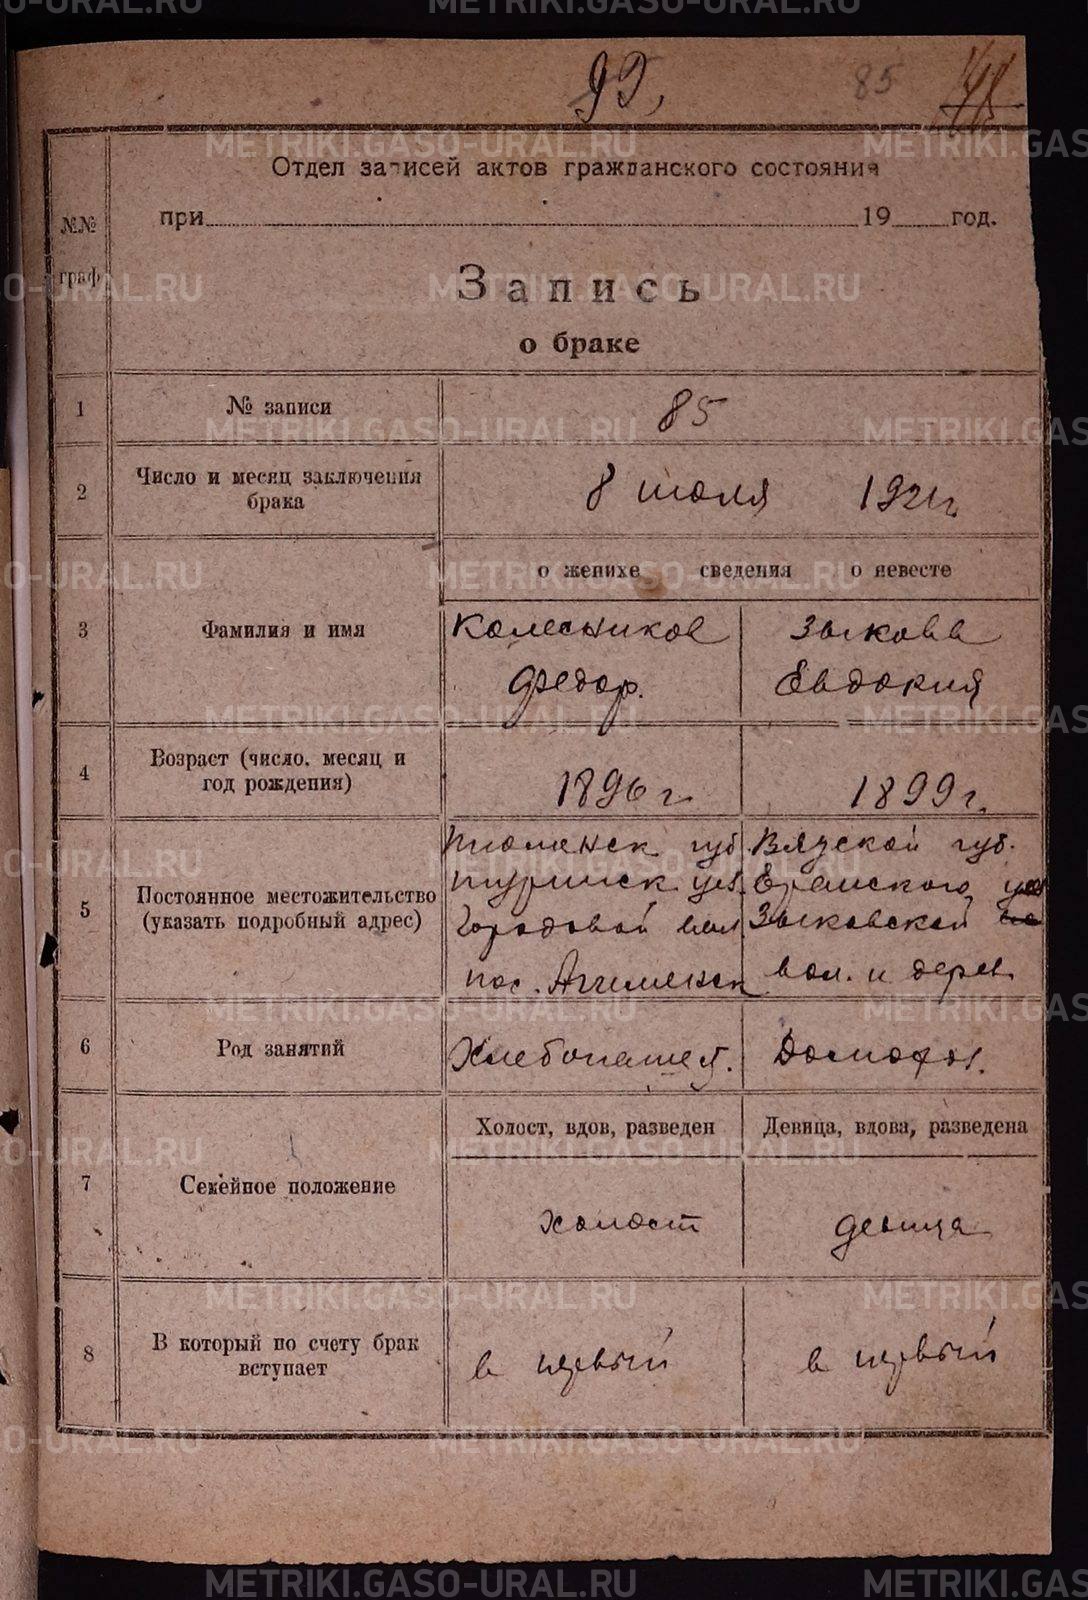 99,
85
Отдел записей актов гражданского состояния
№№ граф
при 19 год.
Запись
о браке
1 № записи 85
2 Число и месяц заключения
брака
8 июля 1921г.
о женихе сведения о невесте
3 Фамилия и имя
Колесников
Федор.
Зыкова
Евдокия
4 Возраст (число, месяц и
год рождения)
1896 г.
1899 г.
5 Постоянное местожительство
(указать подробный адрес)
Тюменск губ.
туринск уез.
Городовой вол
пос.
Вядской губ.
Еранского уез
Зыковской
вол. и дерев.
6 Род занятий
Хлебопашец.
Домохоз.
Холост, вдов, разведен
Девица, вдова, разведена
7 Семейное положение
холост
девица
8 В который по счету брак
вступает
в первый
в первый
METRIKI.GASO-URAL.RU